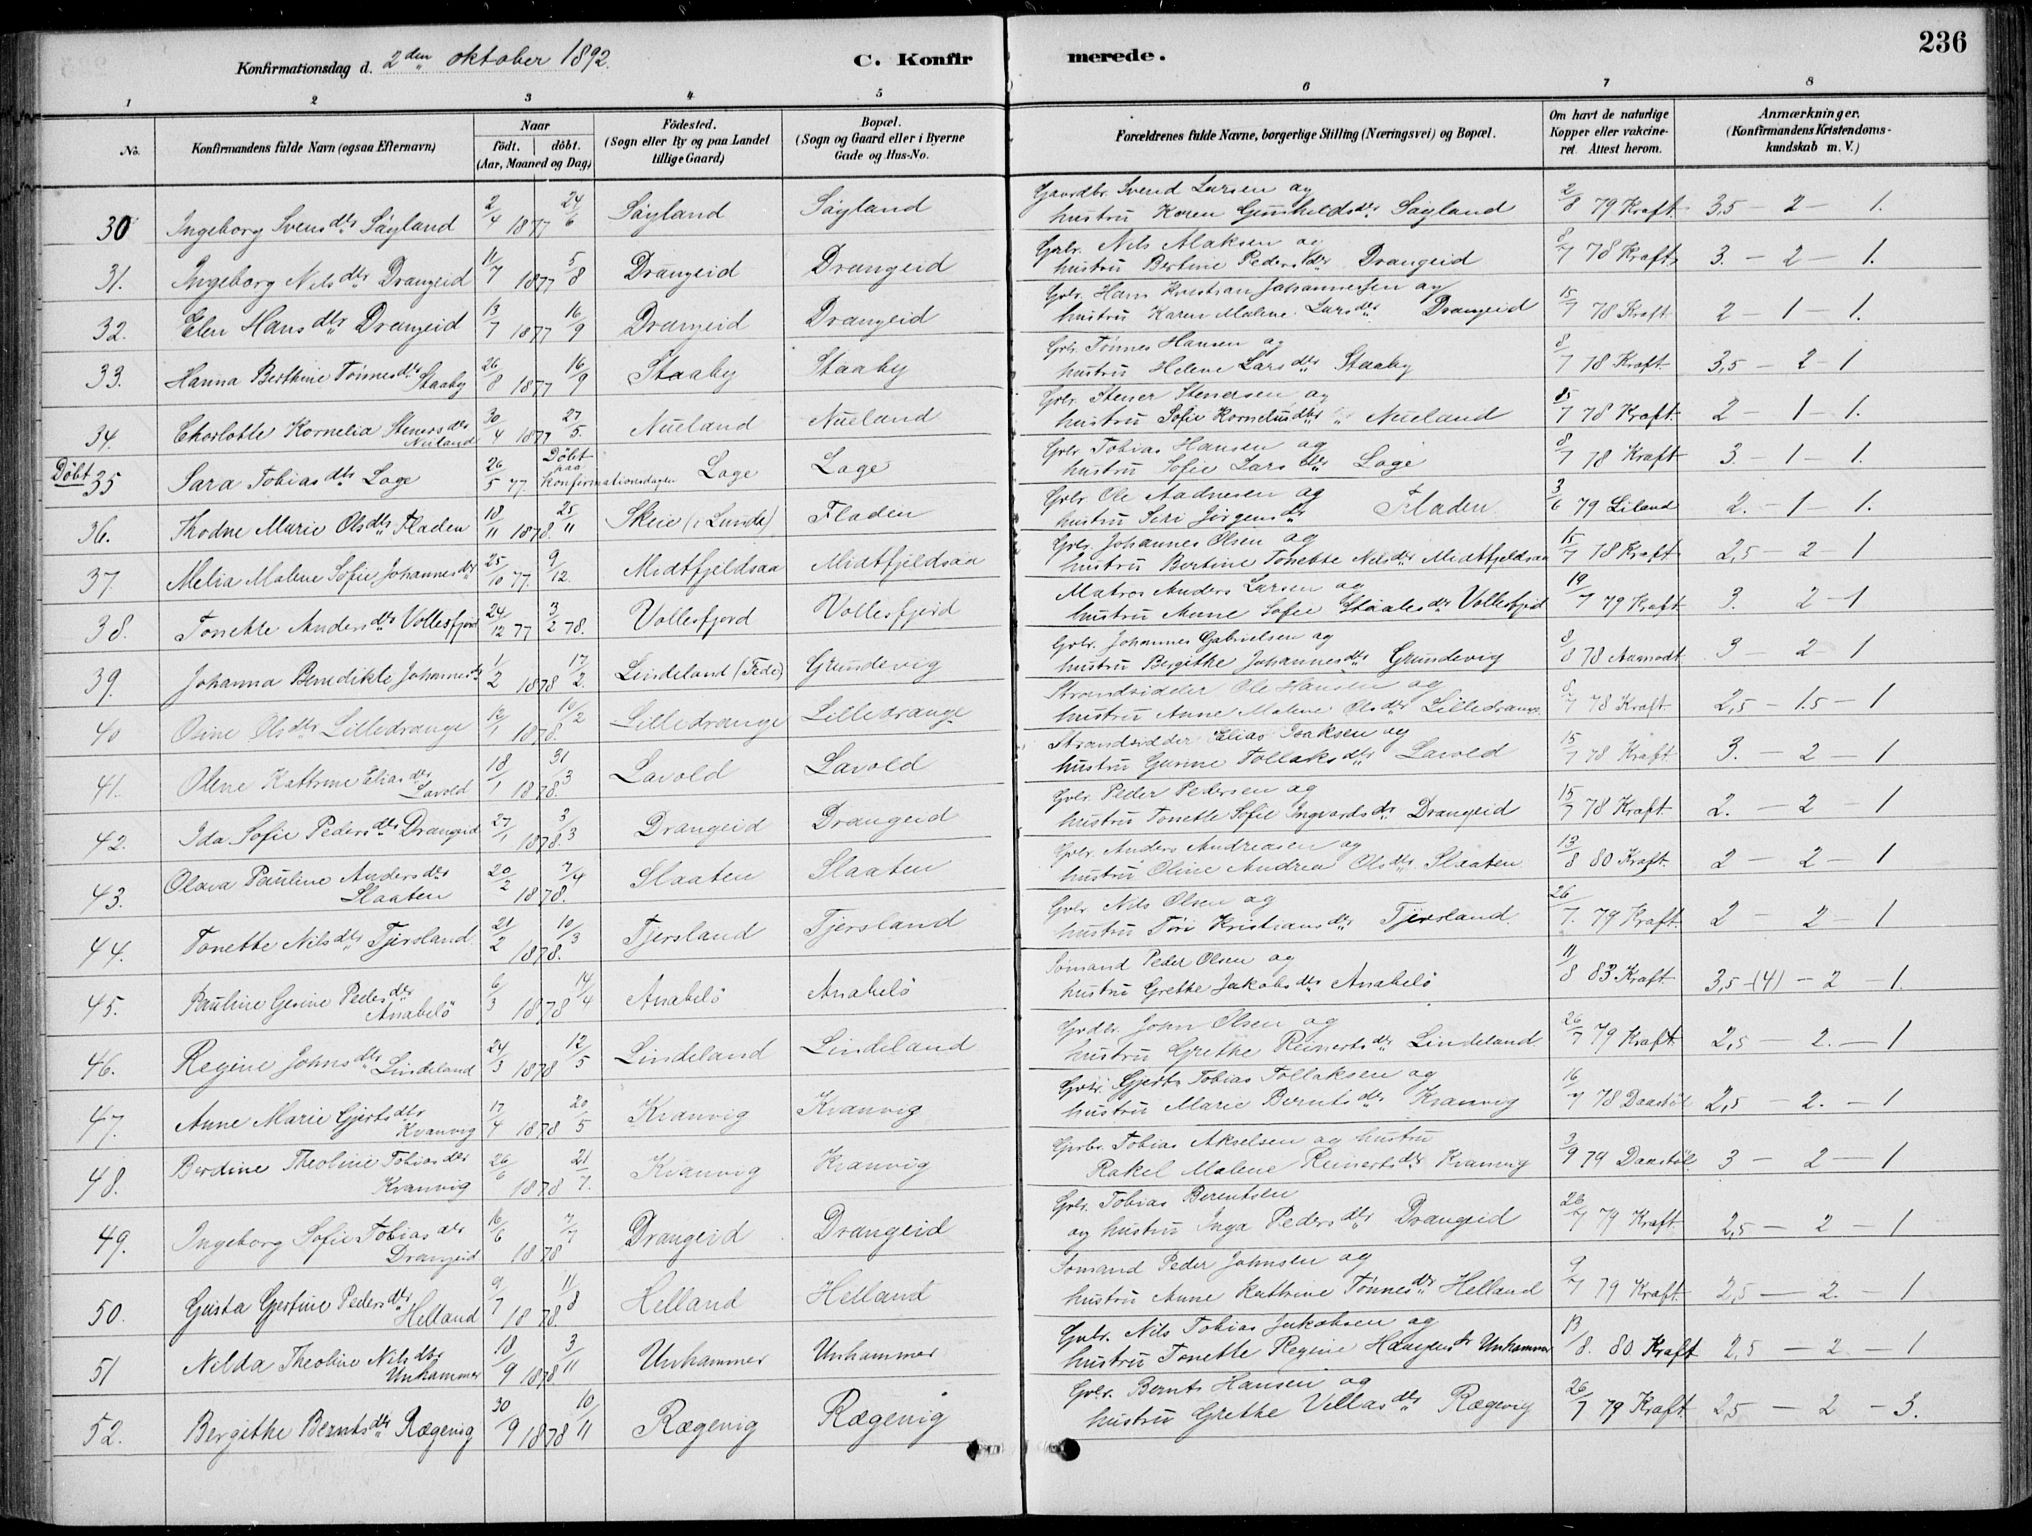 236
Konfirmationsdag d. 2den oktober 1892.
C. Konfirmerede.
1 2 3 4 5 6 7 8
No.
Konfirmandens fulde Navn (ogsaa Efternavn)
Naar
födt. döbt.
(Aar, Maaned og Dag)
Födested.
(Sogn eller By og paa Landet tillige Gaard)
Bopæl.
(Sogn og Gaard eller i Byerne Gade og Hus-No.
Forældrenes fulde Navne, borgerlige Stilling (Næringsvei) og Bopæl.
Om havt de naturlige Kopper eller vakcineret. Attest herom.
Anmærkninger.
(Konfirmandens Kristendomskundskab m. V.)
30 Ingeborg Svensdtr Söyland 2/4 1877 24/6 Söyland Söyland Gaardbr. Svend Larsen og
hustru Karen Gunhildsdtr Söyland 2/8 79 Kraft 3,5 - 2 - 1.
31. Ingeborg Nilsdtr Drangeid 11/7 1877 5/8 Drangeid Drangeid Gbr. Nils Alaksen og
hustru Bertine Pedersdtr Drangeid 8/7 78 Kraft 3. - 2 - 1.
32. Elen Hansdtr Drangeid 13/7 1877 16/9 Drangeid Drangeid Gbr. Hans Kristian Johannessen og
hustru Karen Malene Larsdtr Drangeid 15/7 78 Kraft 2 - 1 - 1.
33. Hanna Berthine Tönnesdtr Staaby 26/8 1877 16/9 Staaby Staaby Gbr. Tönnes Hansen og
hustru Helene Larsdtr Staaby 8/7 78 Kraft 3,5 - 2 - 1
34. Charlotte Kornelia Stenersdtr Nuland 30/4 1877 27/5. Nueland Nueland Gbr. Stener Stenersen og
hustru Sofie Korneliusdtr Nueland 15/7 78 Kraft 2 - 1 - 1.
Döbt 35 Sara Tobiasdtr Loge 26/5 77 Döbt paa Konfirmationsdagen Loge Loge Gbr. Tobias Hansen og
hustru Sofie Larsdtr Loge 8/7 78 Kraft 3 - 1 - 1.
36. Thodne Marie Olsdtr Fladen 18/11 1878. 25/11 Skeie (i Lunde) Fladen Gbr. Ole Aadnesen og
hustru Siri Jörgensdtr Fladen 3/6 79 Liland 2. - 1 - 1.
37. Melia Malene Sofie Johannesdtr 25/10 77. 9/12. Midtfjeldsaa Midtfjeldsaa Gbr. Johannes Olsen og
hustru Bertine Tonette Nilsdtr Midtfjeldsaa 15/7 78 Kraft 2,5 - 2 1
38. Tonette Andersdtr Vollesfjord 24/12 77 3/2 78. Vollesfjord Vollesfjord Matros Anders Larsen og
hustru Anne Sofie Staalesdtr Vollesfjord 19/7 79 Kraft 3. 2 - 1
39. Johanna Benedikte Johannesdtr 1/2 1878 17/2. Lindeland (Fede) Grundevig Gbr. Johannes Gabrielsen og
hustru Bergithe Johannesdtr Grundevig 8/8 78 Aamodt 3 2 1
40 Oline Olsdtr Lilledrange 12/1 1878. 10/2 Lilledrange Lilledrange Strandsidder Ole Hansen og
hustru Anne Malene Olsdtr Lilledrange 8/7 78 Kraft 2,5 - 1.5 - 1
41. Olene Kathrine Eliasdtr Lavold 18/1 1878. 31/3 Lavold Lavold Strandsidder Elias Isaksen og
hustru Gurine Tollaksdtr Lavold 15/7 78 Kraft 3. - 2 - 1
42. Ida Sofie Pedersdtr Drangeid 27/1 1878. 3/3 Drangeid Drangeid Gbr. Peder Pedersen og
hustru Tonette Sofie Ingvardsdtr Drangeid 15/7 78 Kraft 2. - 2 - 1
43. Olava Pauline Andersdtr Slaaten 20/2 1878. 7/4 Slaaten Slaaten Gbr. Anders Andreasen og
hustru Oline Andrea Olsdtr Slaaten 13/8 80 Kraft 2 - 2 - 1
44. Tonette Nilsdtr Tjersland 21/2 1878. 10/3 Tjersland Tjersland Gbr. Nils Olsen og
hustru Töri Kristiansdtr Tjersland 26/7. 79 Kraft 2 - 2 1
45. Pauline Gesine Pedersdtr Anabelö 6/3 1878 14/4 Anabelö Anabelö Sömand Peder Olsen og
hustru Grethe Jakobsdtr Anabelö 11/8 83 Kraft 3,5 -(4) - 2 - 1.
46. Regine Johnsdtr Lindeland 24/3 1878 12/5 Lindeland Lindeland Grdbr. John Olsen og
hustru Grethe Reinertsdtr Lindeland 26/7 79 Kraft 2,5 - 2. - 1
47. Anne Marie Gjertsdtr Kvanvig 17/4 1878 20/5 Kvanvig Kvanvig Gbr. Gjert Tobias Tollaksen og
hustru Marie Berntsdtr Kvanvig 16/7 78 Daastöl 2,5 - 2. - 1
48. Berdine Theoline Tobiasdtr Kvanvig 26/6 1878 21/7. Kvanvig Kvanvig Gbr. Tobias Akselsen og hustru
Rakel Malene Reinertsdtr Kvanvig 3/9 79 Daastöl 3 - 2 - 1
49. Ingeborg Sofie Tobiasdtr Drangeid 16/6 1878 7/7 Drangeid Drangeid Gbr. Tobias Berentsen
og hustru Inga Pedersdtr Drangeid 26/7 79 Kraft 2,5 - 2 - 1
50. Gusta Gjertine Pedersdtr Helland 9/7 1878. 11/8 Helland Helland Sömand Peder Johnsen og
hustru Anne Kathrine Tönnesdtr Helland 9/7 79 Kraft 2,5 - 2. - 1
51 Nilda Theoline Nilsdtr Unhammer 18/9 1878. 3/11 Unhammer Unhammer Gbr. Nils Tobias Jakobsen og
hustru Tonette Regine Hansensdtr Unhammer 13/8. 80 Kraft 2,5 - 2 - 1
52. Bergithe Berntsdtr Rægevig 30/9 1878 10/11 Rægevig Rægevig Gbr. Bernt Hansen og
hustru Grethe Villasdtr Rægevig 26/7 79 Kraft 2,5 - 2 - 3.